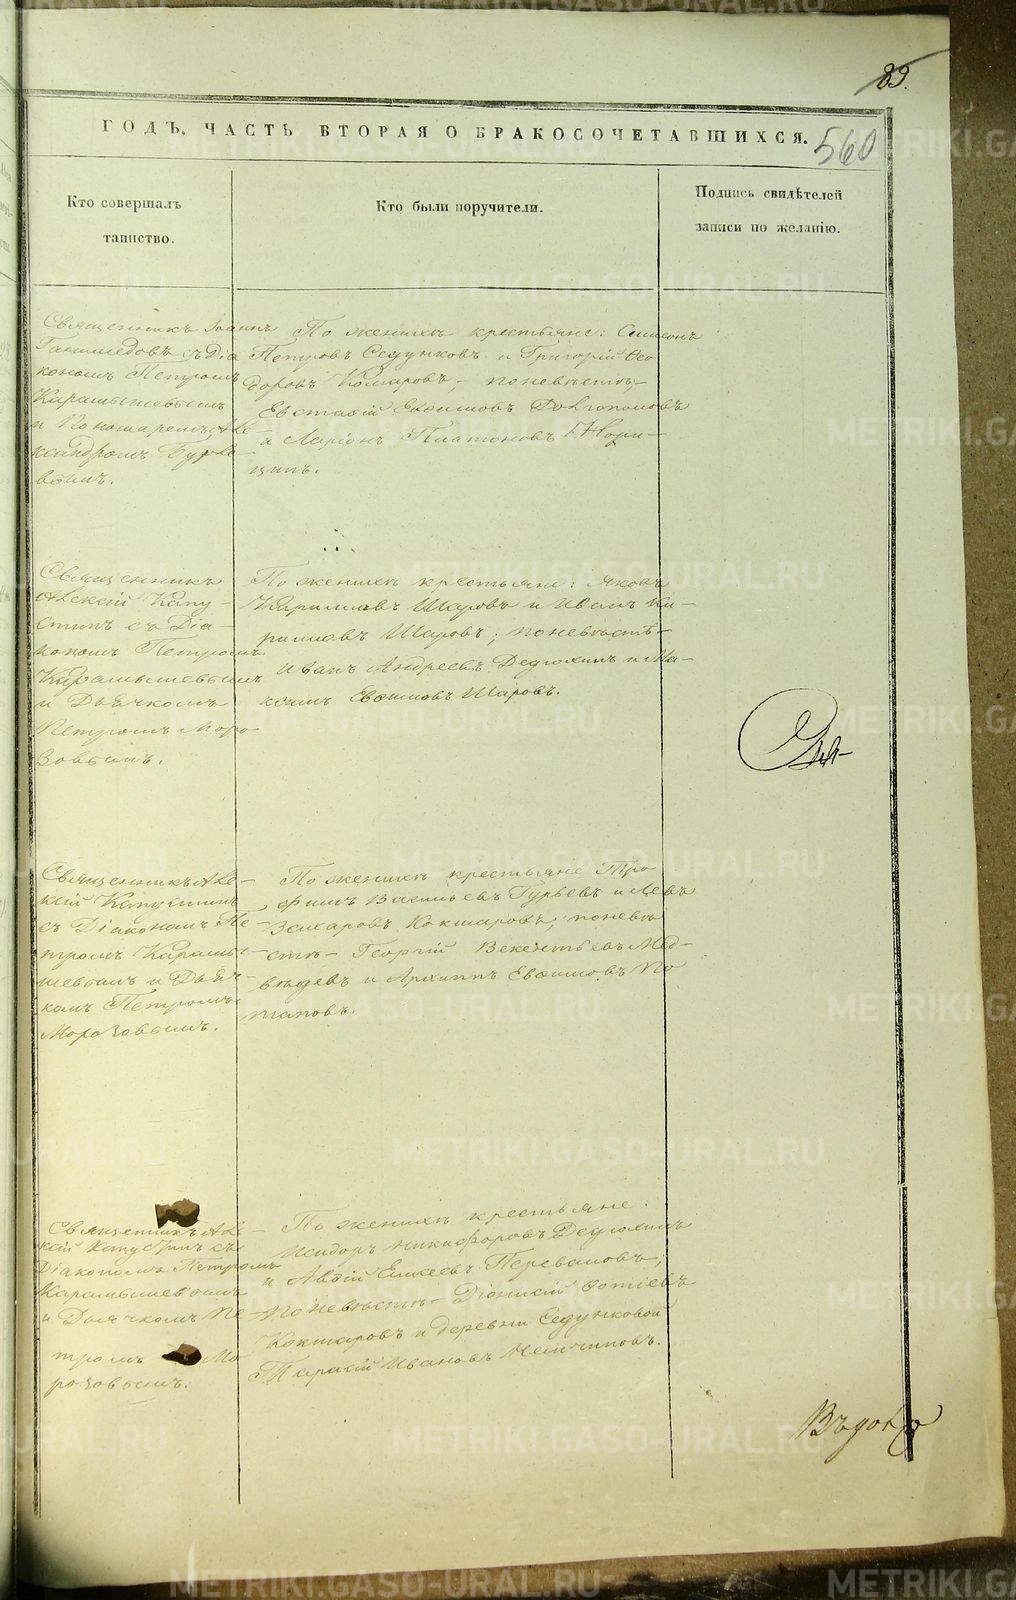 89.
560
ГОДЪ, ЧАСТЬ ВТОРАЯ О БРАКОСОЧЕТАВШИХСЯ.
Кто совершалъ
таинство.
Кто были поручители.
Подпись свидѣтелей
записи по желанію.
Священникъ Іоаннъ
съ Діа
кономъ Петромъ
Карамышевымъ
и Пономаремъ Але
ксандромъ
вымъ.
По женихѣ крестьяне: Симеонъ
Петровъ Седунковъ и Григорій Ѳео
доровъ Комаровъ, по невѣстѣ,
Евстафій Евѳимовъ Долгополовъ
и Ларіонъ Платоновъ
цинъ.
Священникъ
Алексій Капу-
стинъ съ Діа-
кономъ Петромъ
Карамышевымъ
и Дьячкомъ
Петромъ Моро
зовымъ.
По женихѣ крестьяне: Яковъ
Кирилловъ Шаровъ и Иванъ Ки-
рилловъ Шаровъ; по невѣстѣ-
Иванъ Андреевъ Дедюхинъ и Ма-
ксимъ Евѳимовъ Шаровъ.
Священникъ Але-
ксій Капустинъ
съ Діакономъ Пе
тромъ Карамы-
шевымъ и Дьяч-
комъ Петромъ
Морозовымъ.
По женихѣ крестьяне Тро
фимъ Васильевъ Гурьевъ и Левъ
Захаровъ Кокшаровъ; по невѣ
стѣ- Георгій Викентьевъ Мед-
вѣдевъ и Архипъ Евѳимовъ По
таповъ.
Священникъ Але-
ксій Капустинъ съ
Діакономъ Петромъ
Карамышевымъ
и Дьячкомъ Пе
тромъ Мо
розовымъ.
По женихѣ крестьяне:
Исидоръ Никифоровъ Дедюхинъ
и Авдій Еликеевъ Переваловъ;
По невѣстѣ- Діонисій Фотіевъ
Кокшаровъ и деревни Седунковой
Тарасій Ивановъ
METRIKI.GASO-URAL.RU